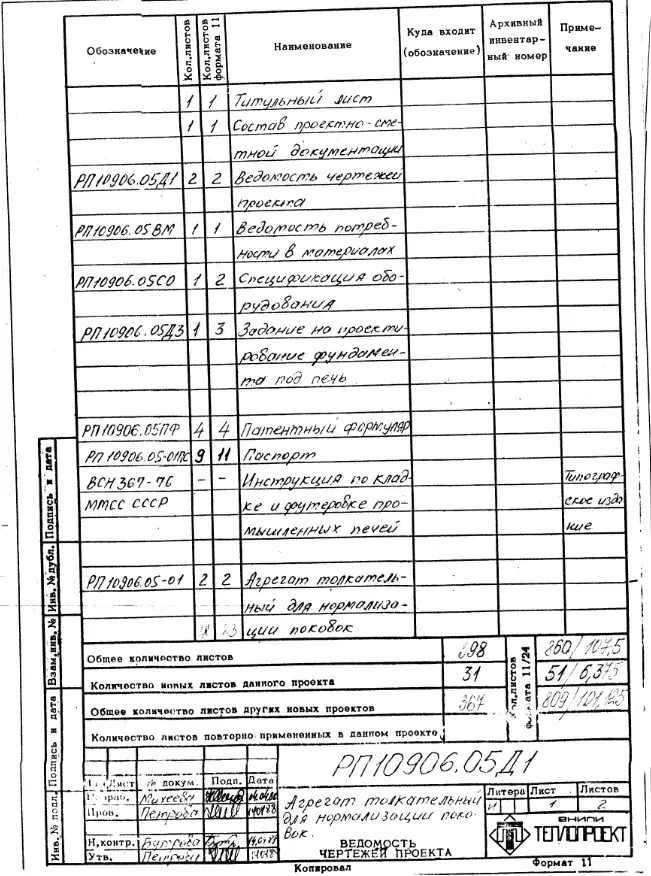 Обозначение Кол.листов Кол.листов формата 11 Наименование Куда входит (обозначение) Архивный инвентарный номер Примечание
1 1 Титульный лист
1 1 Состав проектно-сме-
тной документации
РП10906.05Д1 2 2 Ведомость чертежей
проекта
РП10906.05ВМ 1 1 Ведомость потреб-
ности в материалах
РП10906.05СО 1 2 Спецификация обо-
рудования
РП10906.05ДЗ 1 3 Задание на проекти-
рование фундамен-
та под печь
РП10906.05ПФ 4 4 Патентный формуляр
РП10906.05-01ПС 9 11 Паспорт
ВСН 367-76 — — Инструкция по клад- Типограф-
ММСС СССР ке и футеровке про- ское изда
мышленных печей ние
РП10906.05-01 2 2 Агрегат толкатель-
ный для нормализа-
ции поковок
Общее количество листов 398 860/107,5
Количество новых листов данного проекта 31 51/6,375
Общее количество листов других новых проектов 367 809/101,125
Количество листов повторно примененных в данном проекте
Кол.листов формата 11/24
РП10906.05Д1
Лист № докум. Подп. Дата
Михеева
Пров. Петрова
Н.контр.
Утв. Петрова
Агрегат толкательный
для нормализации поко-
вок.
ВЕДОМОСТЬ
ЧЕРТЕЖЕЙ ПРОЕКТА
Литера Лист Листов
И 1 2
ВНИПИ
ТЕПЛОПРОЕКТ
Копировал Формат 11
Инв.№ подл. Подпись и дата Взам.инв.№ Инв.№ дубл. Подпись и дата